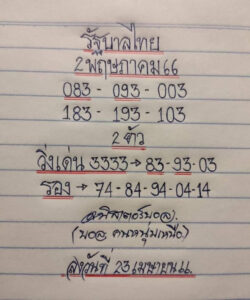 รัฐบาลไทย
2 พฤษภาคม 66
083 - 093 - 003
183 - 193 - 103
2 ตัว
วิ่งเด่น 3333 → 83 - 93 - 03
รอง → 74 - 84 - 94 - 04 - 14
(บอล คนหนุ่มเหนือ)
ลงวันที่ 23 เมษายน 66